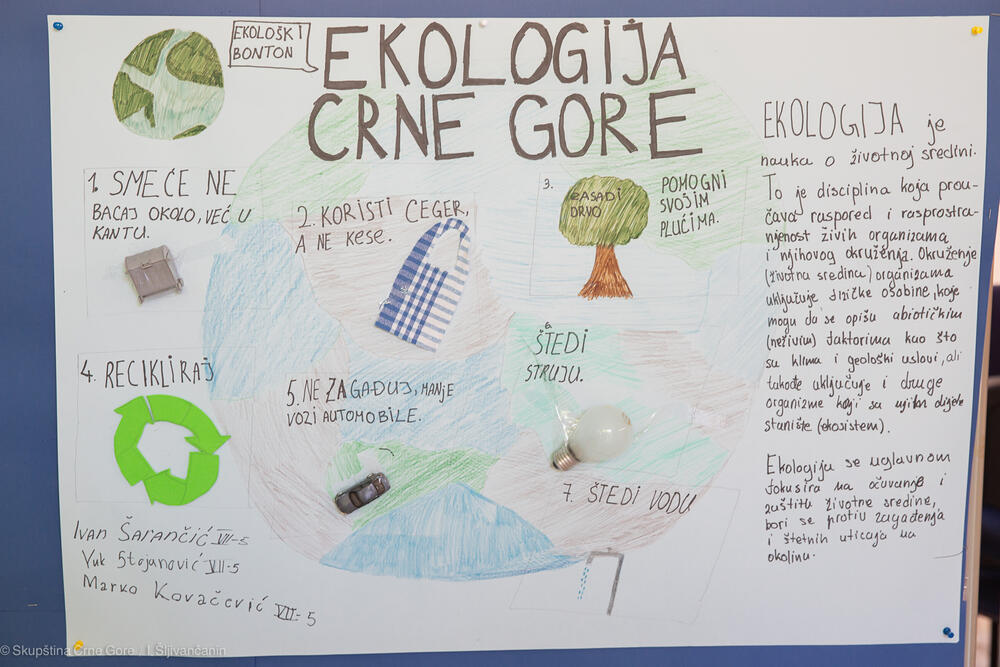 EKOLOŠKI
BONTON
EKOLOGIJA
CRNE GORE
1. SMEĆE NE
BACAJ OKOLO, VEĆ U
KANTU.
2. KORISTI CEGER,
A NE KESE.
3.
ZASADI
DRVO
POMOGNI
SVOJIM
PLUĆIMA.
4. RECIKLIRAJ
5. NE ZAGAĐUJ, MANJE
VOZI AUTOMOBILE.
6.
ŠTEDI
STRUJU.
7. ŠTEDI VODU
Ivan Šarančić VII-5
Vuk Stojanović VII-5
Marko Kovačević VII-5
EKOLOGIJA je
nauka o životnoj sredini.
To je disciplina koja prou-
čava raspored i rasprostra-
njenost živih organizama
i njihovog okruženja. Okruženje
(životna sredina) organizama
uključuje fizičke osobine, koje
mogu da se opišu abiotičkim
(neživim) faktorima kao što
su klima i geološki uslovi, ali
takođe uključuje i druge
organizme koji sa njim dijele
stanište (ekosistem).
Ekologija se uglavnom
fokusira na očuvanje i
zaštitu životne sredine,
bori se protiv zagađenja
i štetnih uticaja na
okolinu.
© Skupština Crne Gore / I. Šljivančanin